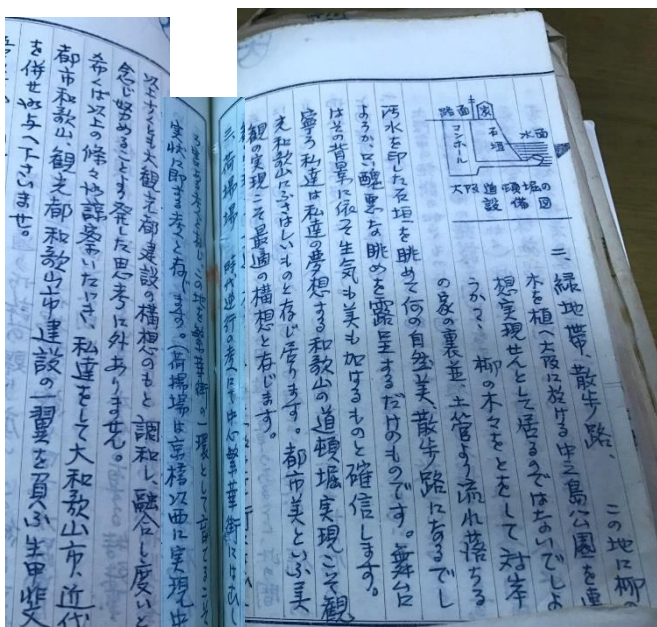 水面
石垣
家
踏面
マンホール
大阪道頓堀の
設備図
二、緑地帯、散歩路、 この地に柳の
木を植へ大阪に於ける中之島公園を連
想実現せんとして居るのではないでしよ
うか、 柳の木々をとをして対岸
の家の裏並、土管より流れ落ちる
汚水を印した石垣を眺めて何の自然美、散歩路になるでし
ようか、只醜悪な眺めを露呈するだけのものです。舞台
はその背景に依って生気も美も加はるものと確信します。
寧ろ私達は私達の夢想する和歌山の道頓堀実現こそ観
光和歌山にふさはしいものと存じ居ります。都市美といふ美
観の実現こそ最適の構想と存じます。
三、荷揚場 時代逆行の考にて中心繁華街には
この地を繁華街の一環として育てることこそ
実状に即する考と存じます。(荷揚場は京橋以西に実現中
以上少くとも大観光都建設の構想のもと調和し、融合し度いと
念じ努めることすら発した思考に外ありません。
希くは以上の條々御諒察いたゞき、私達をして大和歌山市、近代
都市和歌山、観光都和歌山市建設の一翼を負ふ
を併せ御与へ下さいませ。